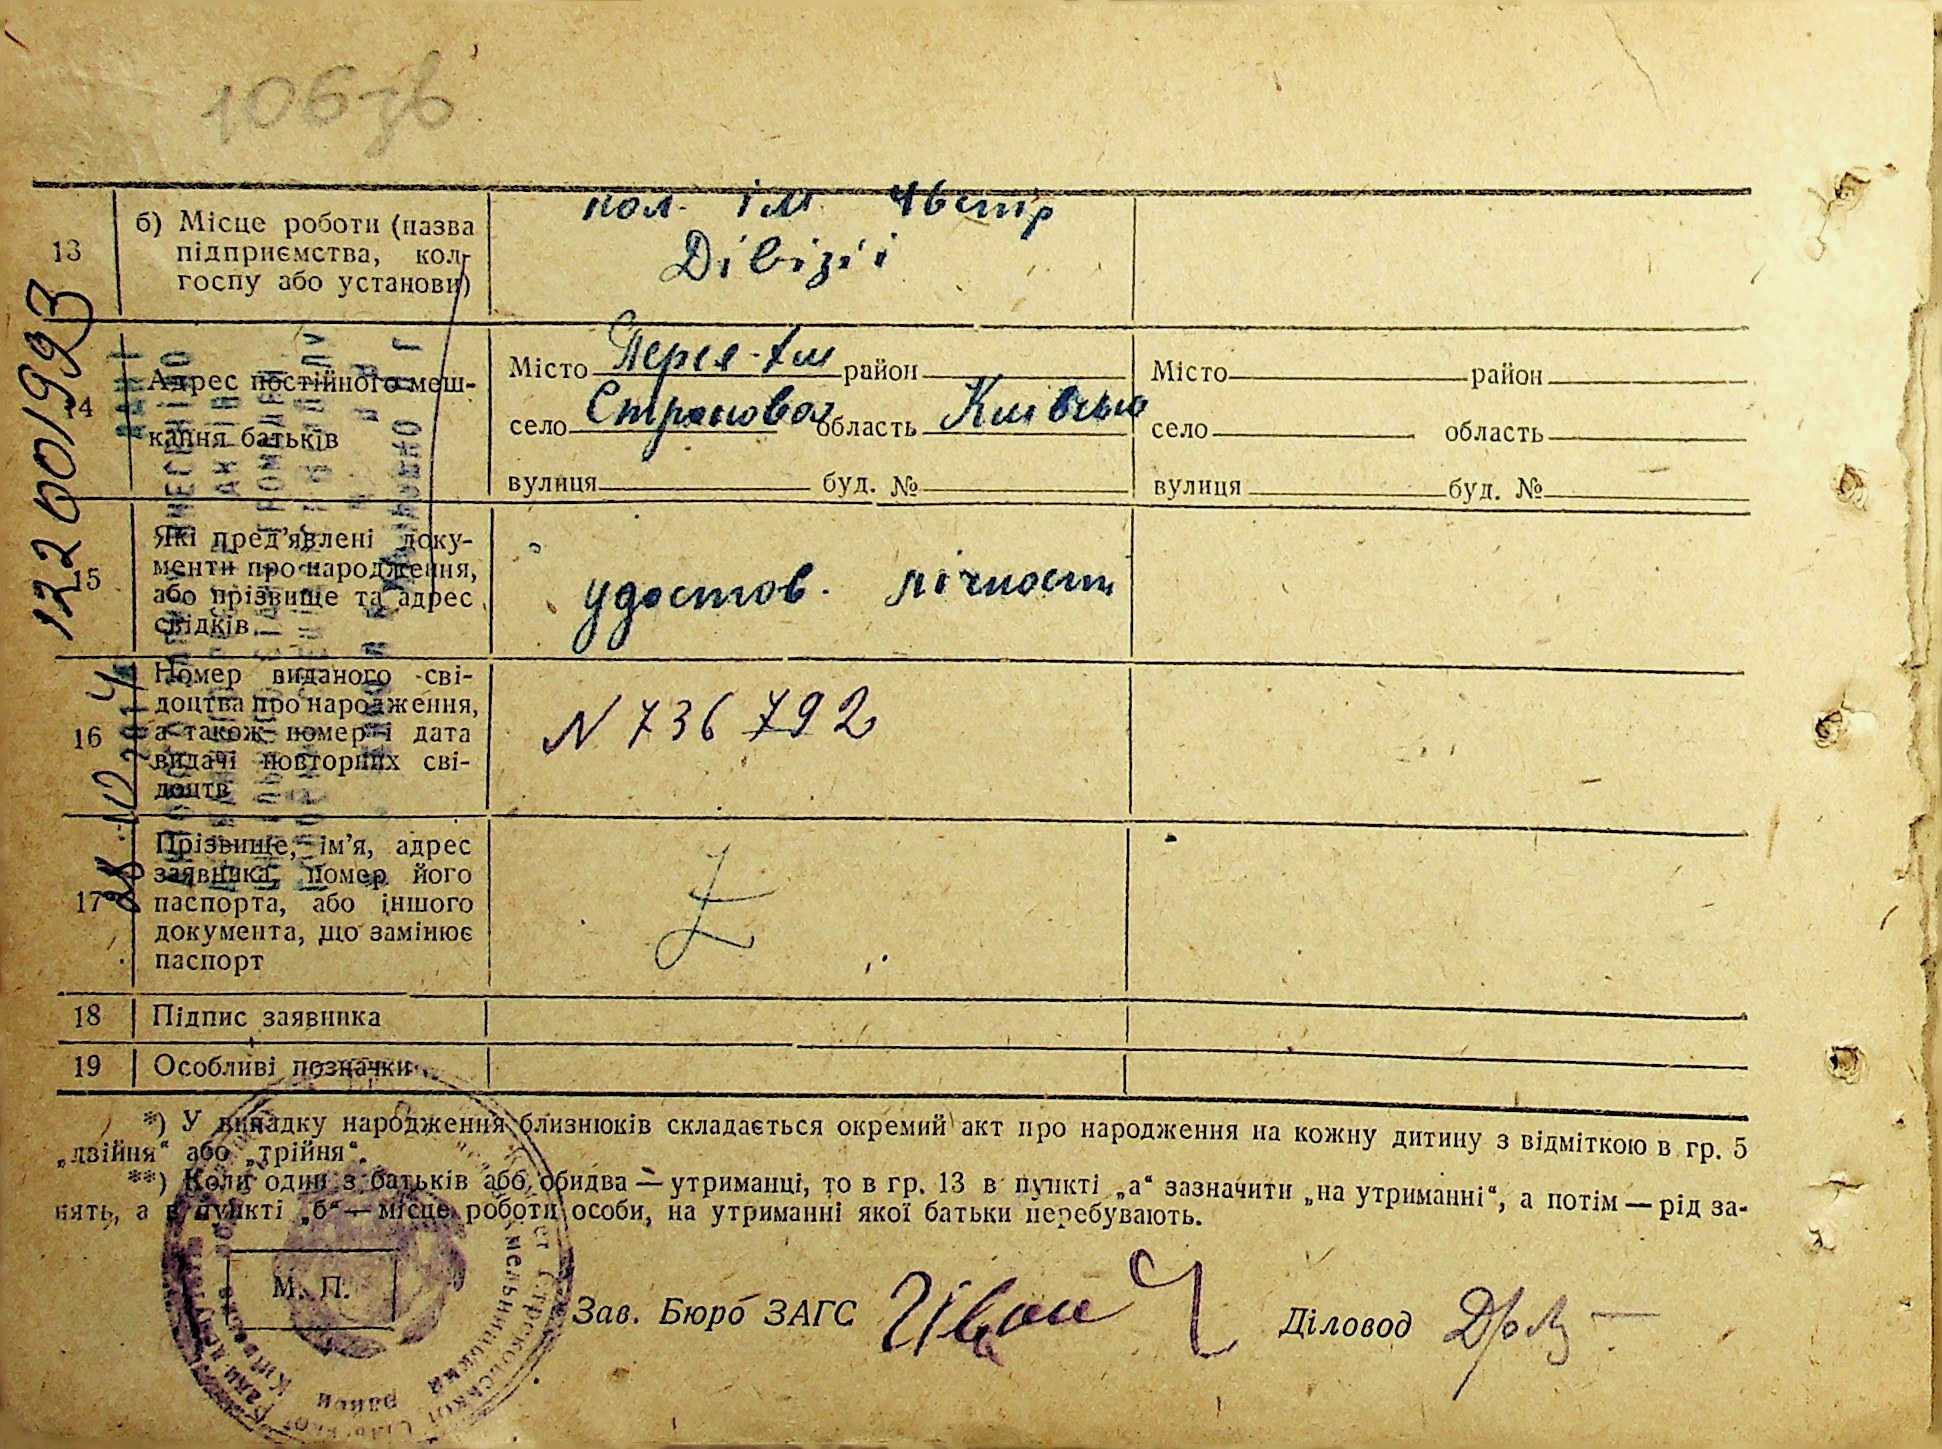 106зв
13
б) Місце роботи (назва
підприємства, кол-
госпу або установи)
кол. ім 46 стр
Дівізіі
14
Адрес постійного меш-
кання батьків
Місто Перея-Хм район
село Строкова область Київська
вулиця буд. №
Місто район
село область
вулиця буд. №
15
Які пред’явлені доку-
менти про народження,
або прізвище та адрес
свідків.
удостов. лічност
16
Номер виданого сві-
доцтва про народження,
а також номер і дата
видачі повторних сві-
доцтв
N 736792
17
Прізвище, ім’я, адрес
заявника, номер його
паспорта, або іншого
документа, що замінює
паспорт
18 Підпис заявника
19 Особливі позначки
*) У випадку народження близнюків складається окремий акт про народження на кожну дитину з відміткою в гр. 5
„двійня“ або „трійня“.
**) Коли один з батьків або обидва — утриманці, то в гр. 13 в пункті „а“ зазначити „на утриманні“, а потім — рід за-
нять, а в пункті „б“ — місце роботи особи, на утриманні якої батьки перебувають.
М. П.
Зав. Бюро ЗАГС
Діловод
1220019923